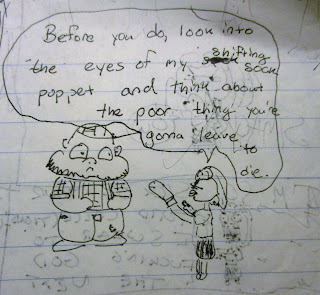 Before you do, look into
the eyes of my shifting sock
puppet and think about
the poor thing you're
gonna leave to
die.